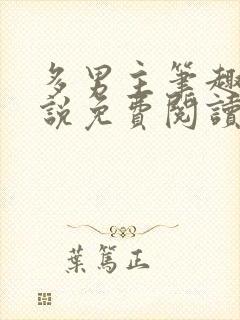 多男主筆趣
說免費閱讀
葉篤正